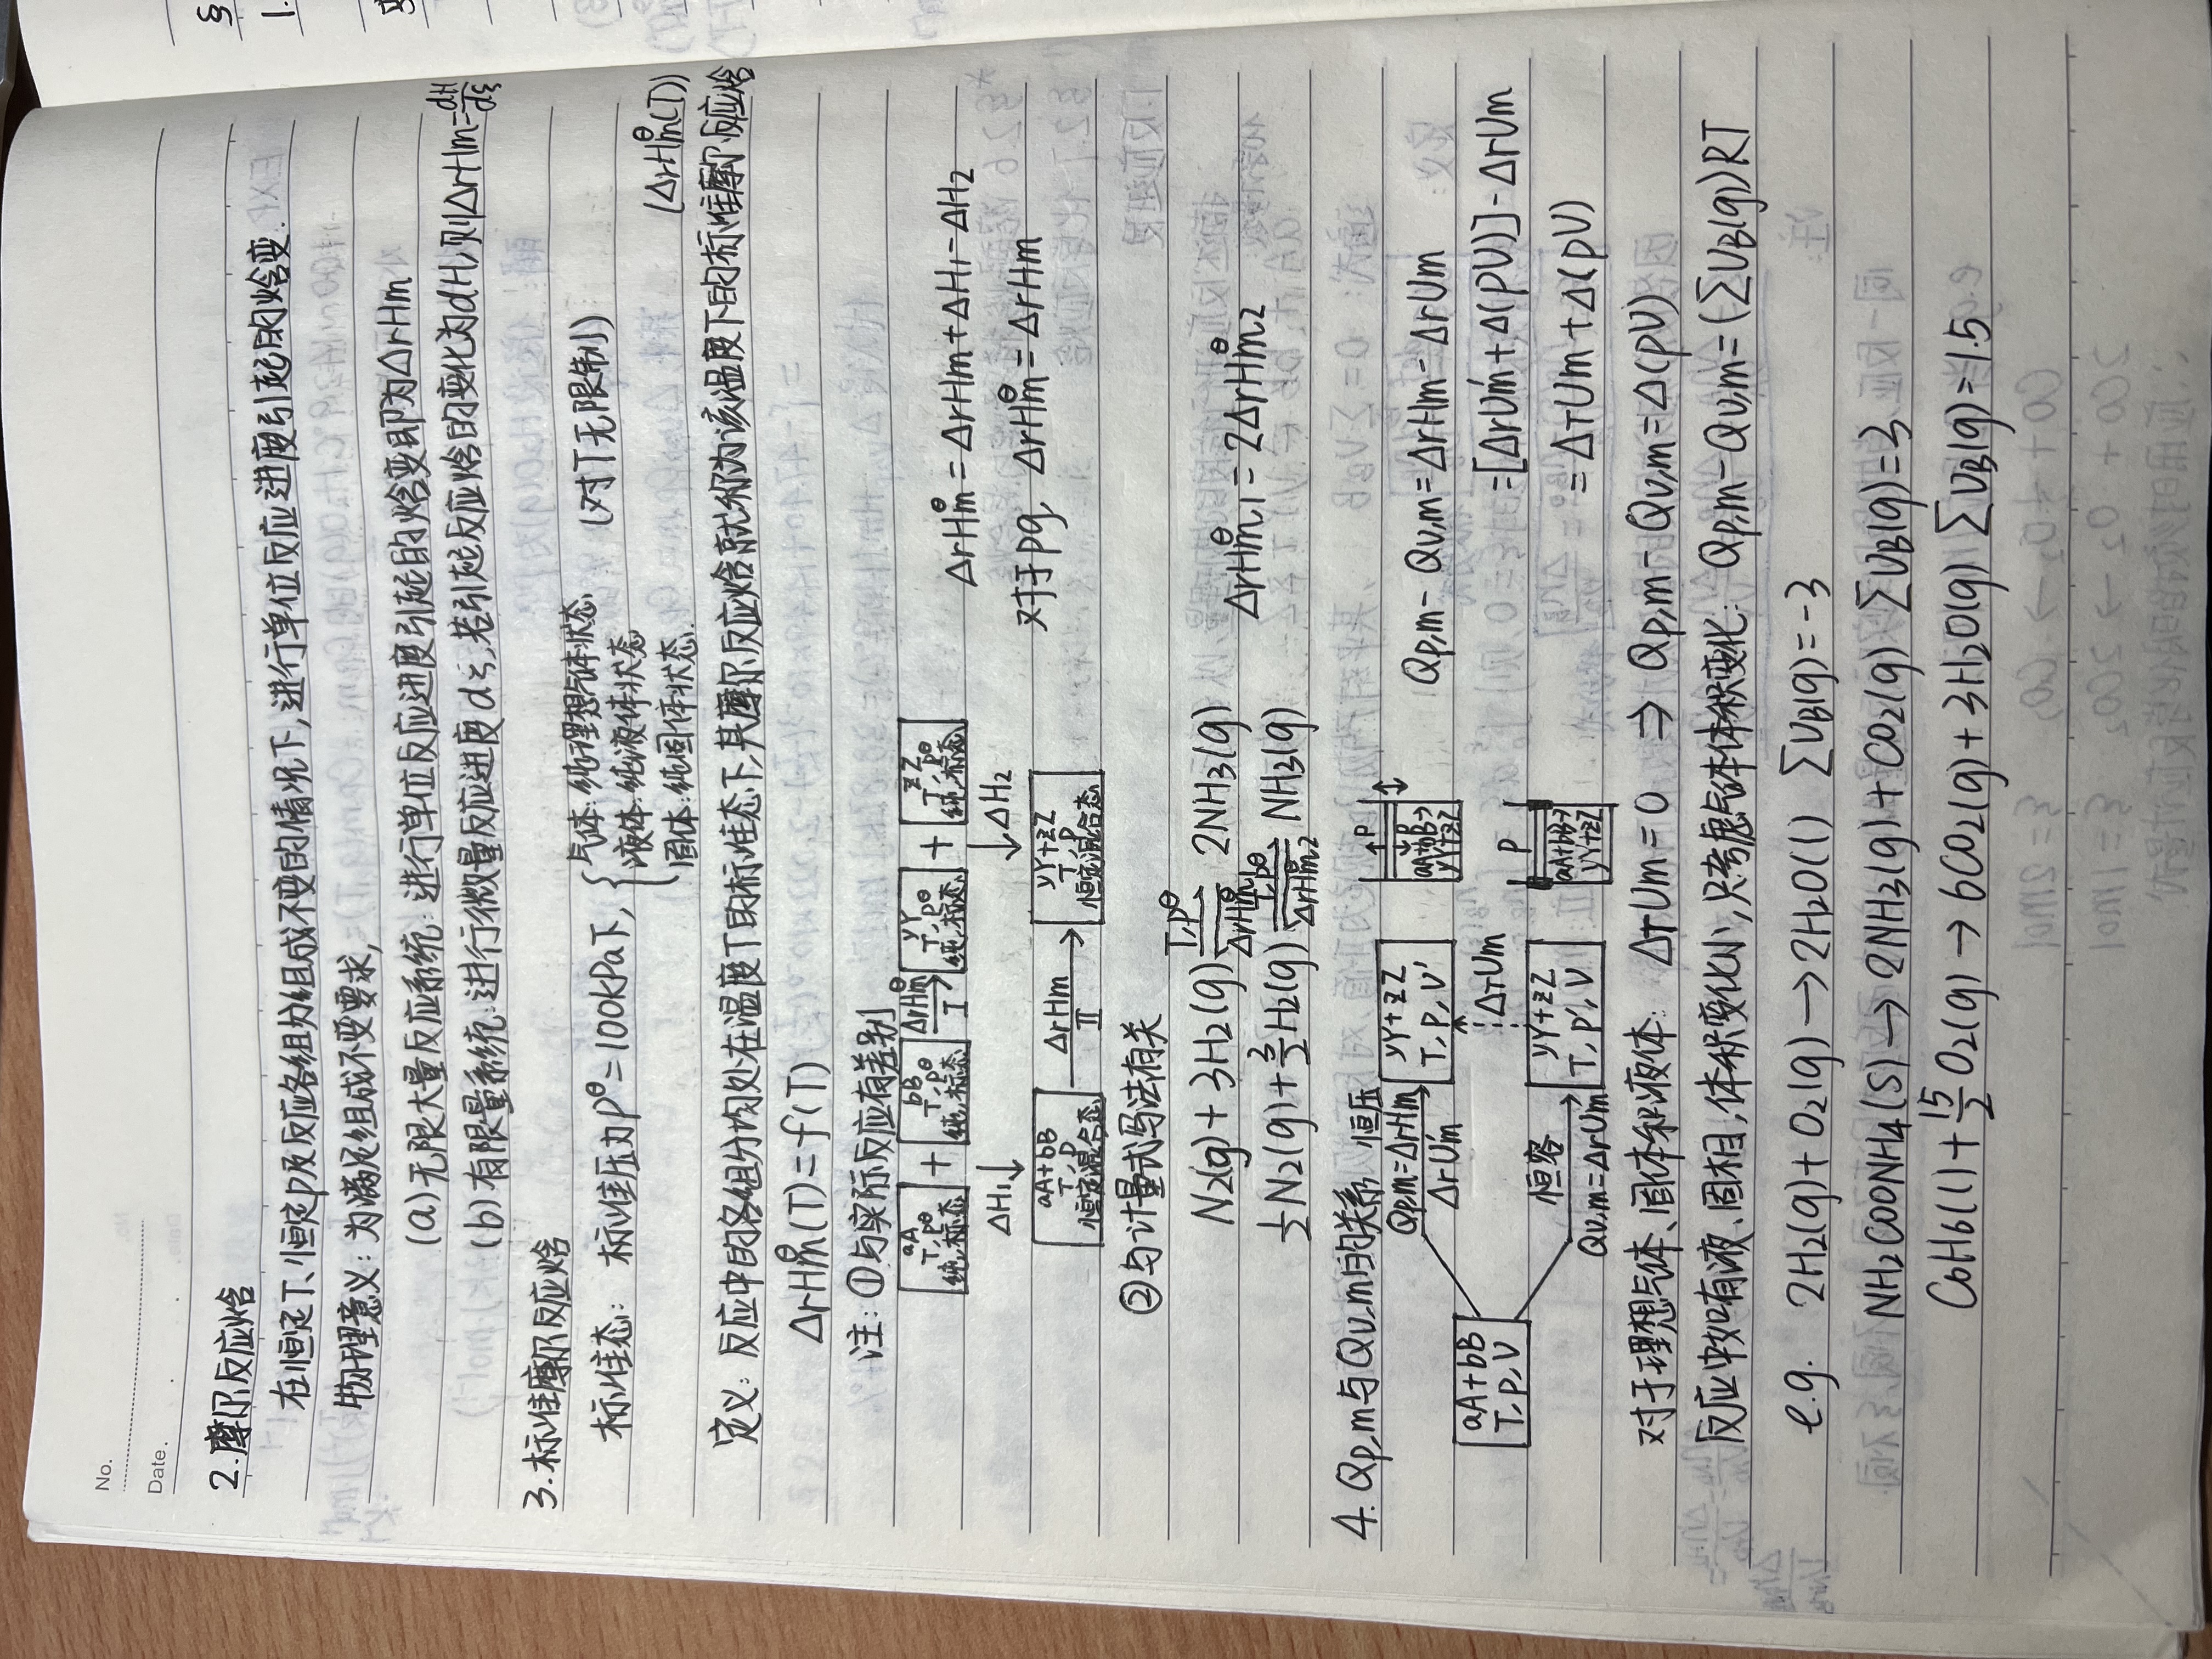 No.
Date.
2.摩尔反应焓
在恒定T、恒定p及反应各组分组成不变的情况下,进行单位反应进度引起的焓变.
物理意义:为满足组成不变要求,
(a)无限大量反应系统:进行单位反应进度引起的焓变即为ΔrHm
(b)有限量系统:进行微量反应进度dξ,若引起反应焓的变化为dH,则ΔrHm=dH/dξ
3.标准摩尔反应焓
标准态: 标准压力p^θ=100kPa下,
气体:纯理想气体状态
液体:纯液体状态
固体:纯固体状态.
(对T无限制)
(ΔrHm^θ(T))
定义:反应中的各组分均处在温度T的标准态下,其摩尔反应焓就称为该温度下的标准摩尔反应焓
ΔrHm^θ(T)=f(T)
注:①与实际反应有差别
aA T,p^θ 纯,标态 + bB T,p^θ 纯,标态 ΔrHm^θ Ⅰ → yY T,p^θ 纯,标态 + zZ T,p^θ 纯,标态
ΔH1↓ ↓ΔH2
aA+bB T,p 恒定混合态 ΔrHm Ⅱ → yY+zZ T,p 恒定混合态
ΔrHm^θ=ΔrHm+ΔH1-ΔH2
对于pg, ΔrHm^θ=ΔrHm
②与计量式写法有关
N2(g)+3H2(g) ⇌ T,p^θ ΔrHm,1^θ 2NH3(g)
½N2(g)+3/2H2(g) ⇌ T,p^θ ΔrHm,2^θ NH3(g)
ΔrHm,1^θ=2ΔrHm,2^θ
4.Qp,m与Qv,m的关系
aA+bB
T,p,V
恒压
Qp,m=ΔrHm
ΔrUm'
yY+zZ
T,p,V'
↑ΔTUm
恒容
Qv,m=ΔrUm
yY+zZ
T,p',V
↑p
↓p
aA+bB→
yY+zZ
p
aA+bB→
yY+zZ
Qp,m-Qv,m=ΔrHm-ΔrUm
=[ΔrUm'+Δ(pV)]-ΔrUm
=ΔTUm+Δ(pV)
对于理想气体、固体和液体: ΔTUm=0 ⇒ Qp,m-Qv,m=Δ(pV)
反应中如有液、固相,体积变化小,只考虑气体体积变化: Qp,m-Qv,m=(∑νB(g))RT
e.g. 2H2(g)+O2(g)→2H2O(l) ∑νB(g)=-3
NH2COONH4(s)→2NH3(g)+CO2(g) ∑νB(g)=3
C6H6(l)+15/2O2(g)→6CO2(g)+3H2O(g) ∑νB(g)=1.5
§
1.